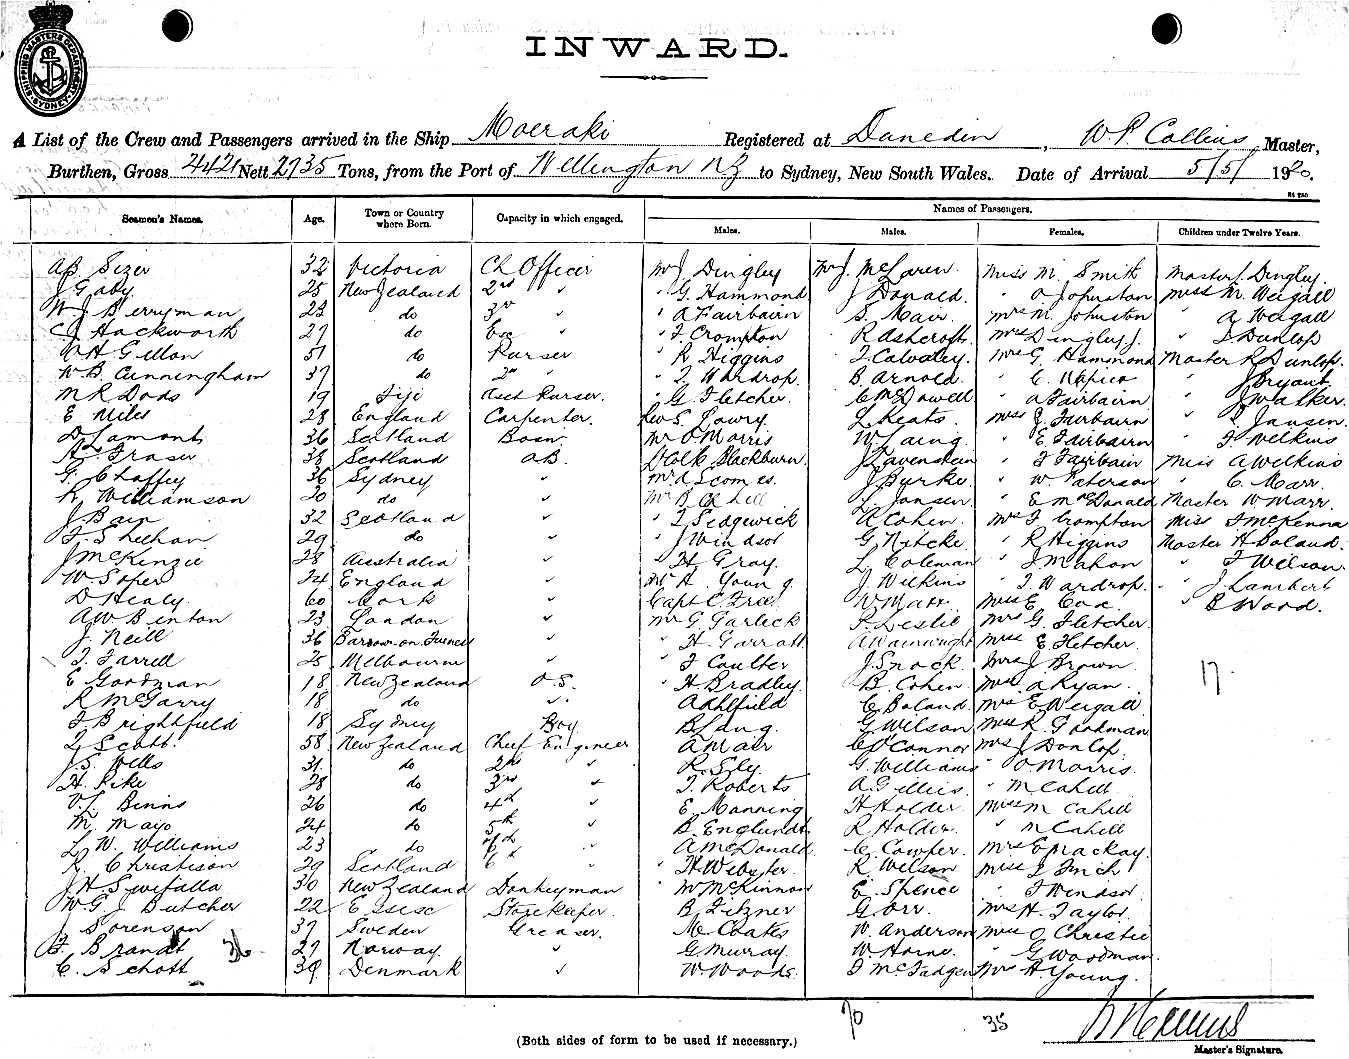 SHIPPING MASTERS DEPARTMENT SYDNEY
INWARD.
A List of the Crew and Passengers arrived in the Ship Moeraki Registered at Dunedin, W. P. Collins Master,
Burthen, Gross 4421 Nett 2735 Tons, from the Port of Wellington NZ to Sydney, New South Wales. Date of Arrival 5/5/ 1920.
Names of Passengers.
Seamen's Names. Age. Town or Country where Born. Capacity in which engaged. Males. Males. Females. Children under Twelve Years.
AB Sizer 32 Victoria Ch Officer Mr J Dingley Mr J. McLaren. Miss M. Smith Master J. Dingley.
J Gaby 25 New Zealand 2nd " " G. Hammond J Donald. " A Johnston Miss M. Weigall
W J Berryman 23 do 3rd " " A Fairbairn S. Mair. Mrs M. Johnston " A Weigall
C J Hackworth 27 do Ex " " F. Crompton R Ashcroft. Mrs Dingley J. " J Dunlop
A H Gillon 51 do Purser " R Higgins J. Calvaley. Mrs G. Hammond Master R Dunlop.
W B. Cunningham 37 do 2nd " " J. Wardrop. B. Arnold. " C. Napier " J Bryant
M R Dods 19 Fiji Asst Purser. " G. Fletcher. C McDowell " A Fairbairn. " J Walker.
E Niles 28 England Carpenter. Rev S. Lowry. L Keats. Miss J. Fairbairn " P. Jansen.
D Lamont 36 Scotland Bosn Mr O Morris W Laing. " E Fairbairn " F Wilkins
A Fraser 38 Scotland AB. Blackburn. J Tavenstein " F Fairbairn Miss A Wilkins
G. Chaffey 36 Sydney " J Burke. " W Paterson " C. Marr.
R Williamson 20 do " Mr B Cahill J Jansen. " E McDonald Master W Marr.
J Bain 32 Scotland " " J Sedgewick A Cohen. Mrs F Crompton Miss J McKenna
F. Sheehan 29 do " " J Windsor G Nitcke " R Higgins Master H Boland.
J McKenzie 28 Australia " " H Gray. L Coleman " J Mahon " F Wilson
W Soper 24 England " Mr A Young. J Wilkins " J Wardrop. " J Lambert
D Healy. 60 Cork " Capt C Free W Marr. Miss E Cox " B Wood.
A W Benton 23 London " Mr G Garlick F. Leslie Mrs G Fletcher.
J. Neill 36 Barrow-on-Furness " " H Garratt A Wainwright Miss E Fletcher.
T. Farrell 25 Melbourne " " F Coulter J. Snock. Mrs J Brown 17
E Goodman 18 New Zealand O.S. " H Bradley. B. Cohen. Mrs A Ryan.
R McGarry 18 do " A Ahlfield C Boland Mrs E Weigall
F Brightfield 18 Sydney Boy B Lang. G. Wilson Miss R Goodman
J. Scott. 58 New Zealand Chief Engineer A Mair C O'Connor Mrs J Dunlop.
J. S. Wills 31 do 2nd " R. Ely. G. Williams " O Morris.
H. Pike 28 do 3rd " J. Roberts A Gillies. " M Cahill
V. L. Binns 26 do 4th " E. Manning H Holder. Miss M Cahill
M Mayo 24 do 5th " B. Englundt R Holder. " M Cahill
L W. Williams 23 do " A McDonald C. Cowper. Mrs E Mackay.
R. Christison 29 Scotland 6th " " H Webster. R Wilson Miss J Finch
J. H. Swifalla 30 New Zealand Donkeyman " W McKinnon E Spence " F Windsor
W G J Butcher 22 Essex Storekeeper. B. Fitzner G. Orr. Mrs H. Taylor
J Sorenson 37 Sweden Greaser. M Coates W. Anderson Miss O Christie
F. Brandt 36 27 Norway " G Murray. W. Horne " G Woodman.
C. Schott 39 Denmark " W. Woods. F McFadgen Mrs A Young.
70 35
(Both sides of form to be used if necessary.)
Master's Signature.